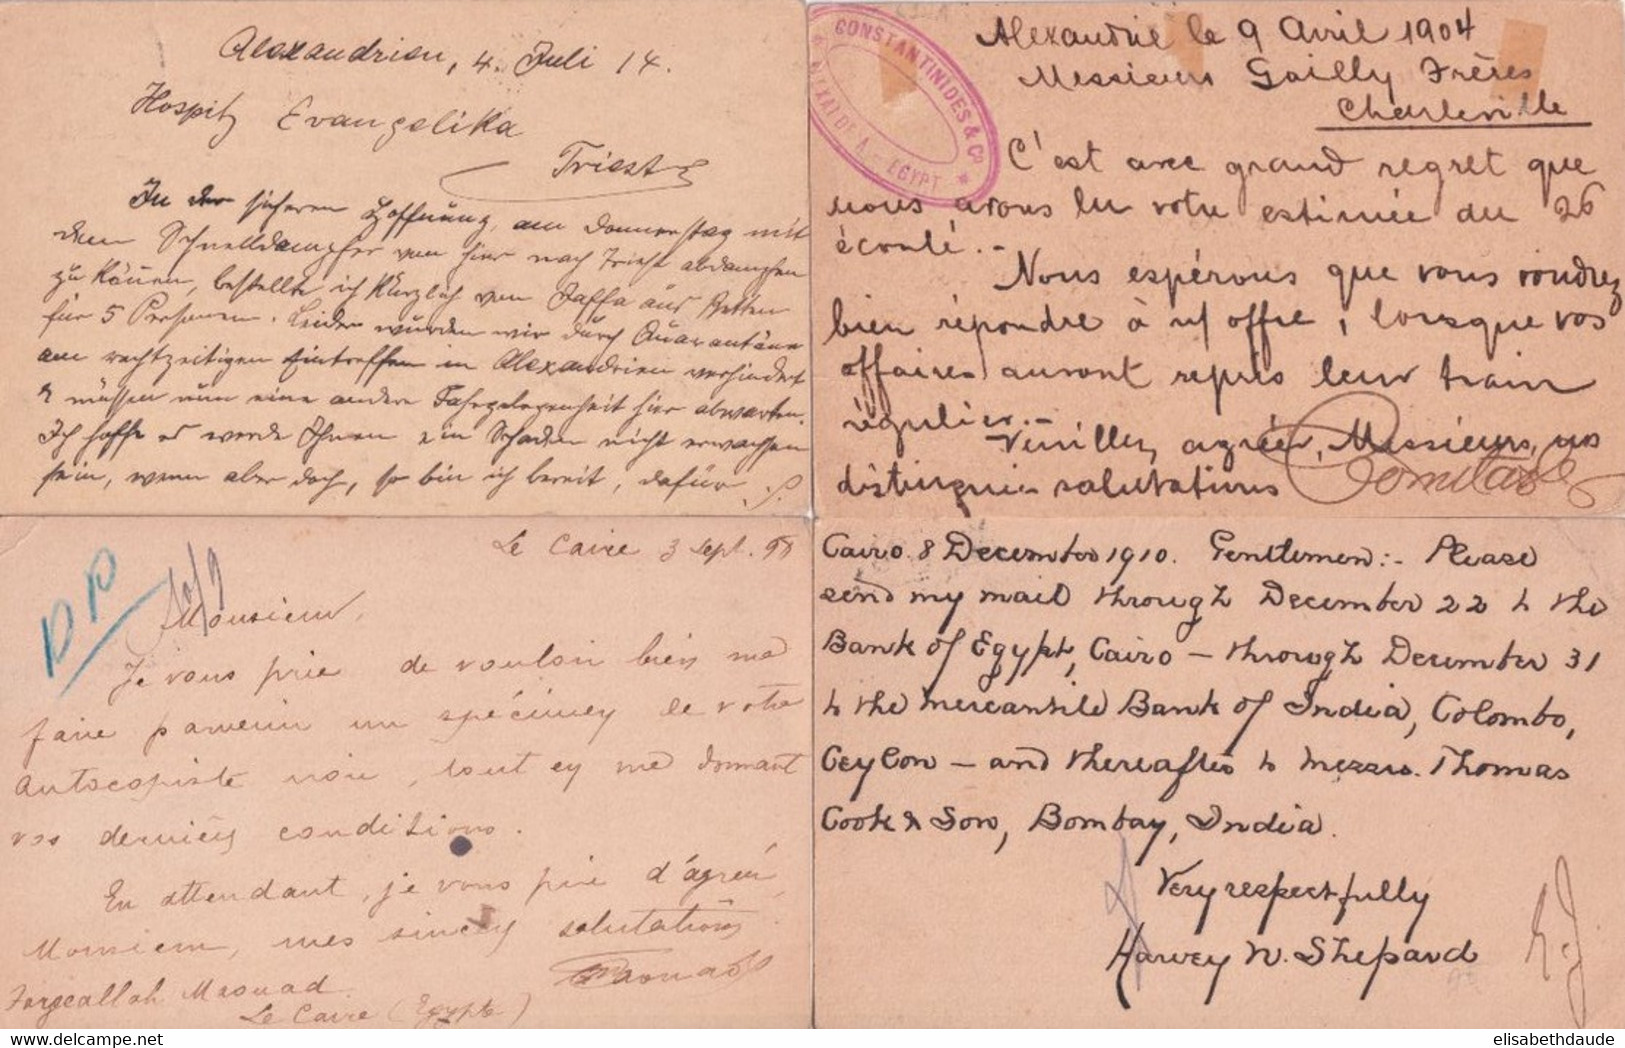 Alexandrien, 4. Juli 14.
Hospitz Evangelika
Triest
In der sicheren Hoffnung, am Donnerstag mit
dem Schnelldampfer von hier nach Triest abdampfen
zu können, bestellte ich kürzlich von Jaffa aus Betten
für 5 Personen. Leider wurden wir durch Quarantäne
am rechtzeitigen Eintreffen in Alexandrien verhindert
& müssen nun eine andere Fahrgelegenheit hier abwarten.
Ich hoffe es werde Ihnen ein Schaden nicht erwachsen
sein, wenn aber doch, so bin ich bereit, dafür
CONSTANTINIDES & Co
EGYPT
Alexandrie le 9 Avril 1904
Messieurs Gailly Frères
Charleville
C'est avec grand regret que
nous avons lu votre estimée du 26
écoulé.-
Nous espérons que vous voudrez
bien répondre à n/ offre, lorsque vos
affaires auront repris leur train
régulier.-
Veuillez agréer, Messieurs, nos
distinguées salutations
Le Caire 3 Sept. 98
Monsieur,
Je vous prie de vouloir bien me
faire parvenir un spécimen de votre
autocopiste noir, tout en me donnant
vos derniers conditions.
En attendant, je vous prie d'agréer,
Monsieur, mes sincères salutations
Fargeallah Maouad
Le Caire (Egypte)
Cairo 8 December 1910. Gentlemen:- Please
send my mail through December 22 to the
Bank of Egypt, Cairo - through December 31
to the Mercantile Bank of India, Colombo,
Ceylon - and thereafter to Messrs. Thomas
Cook & Son, Bombay, India.
Very respectfully
Harvey N. Shepard
elisabethdaude